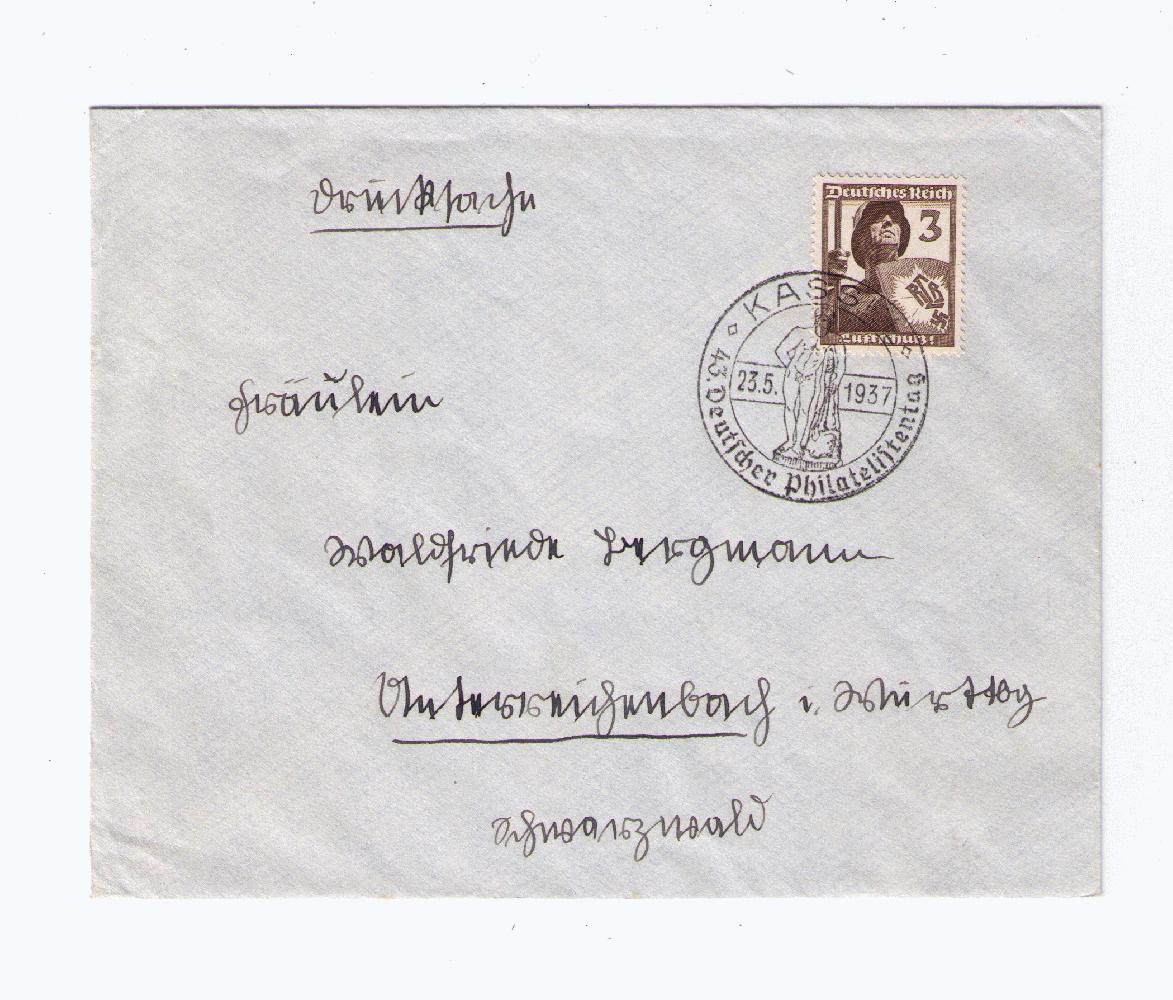 Drucksache
Deutsches Reich
3
RLB
Luftschutz!
KASS
23.5. 1937
43. Deutscher Philatelistentag
Fräulein
Waldfriede Bergmann
Unterreichenbach i. Württbg
Schwarzwald